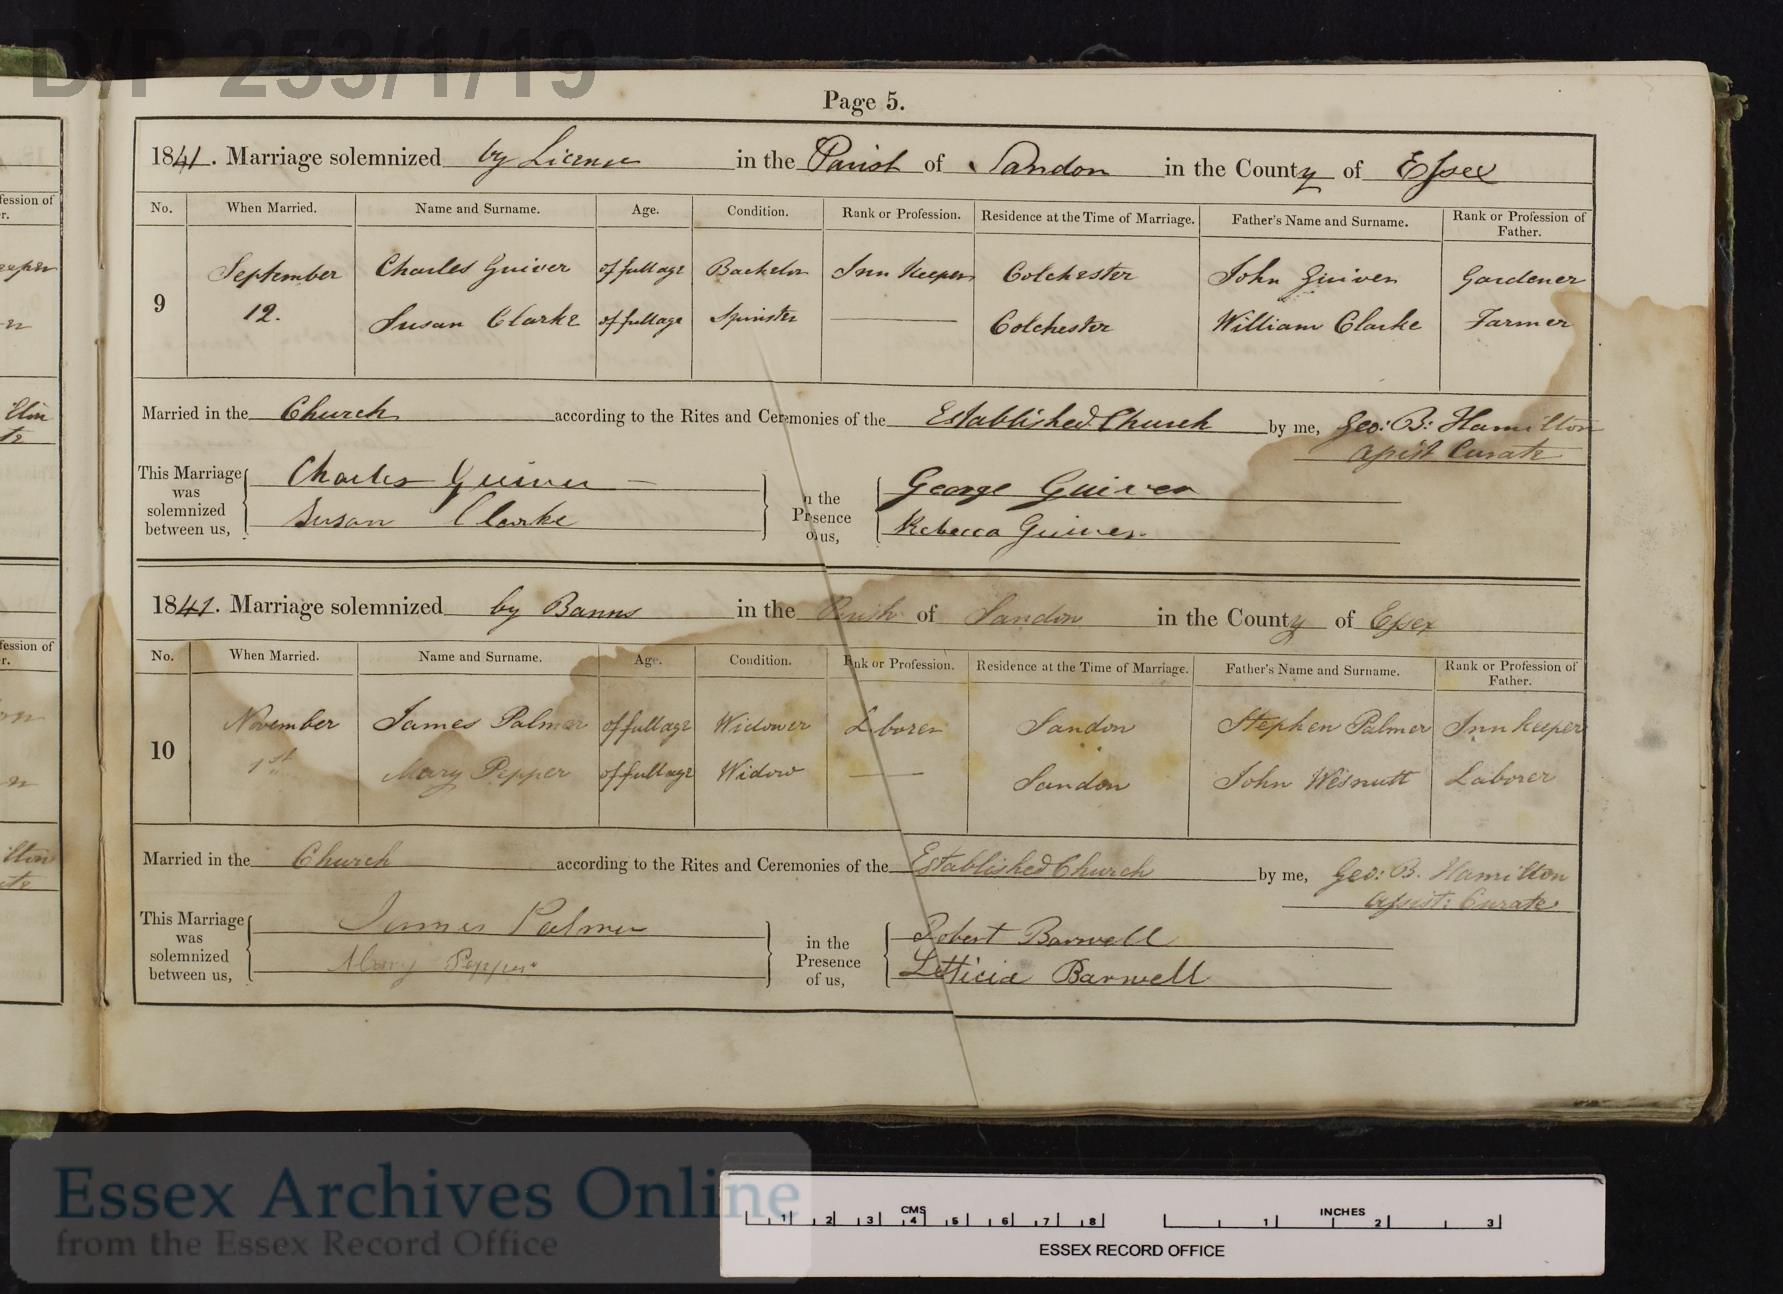 D/P 253/1/19
Page 5.
1841. Marriage solemnized by License in the Parish of Sandon in the County of Essex
No. When Married. Name and Surname. Age. Condition. Rank or Profession. Residence at the Time of Marriage. Father's Name and Surname. Rank or Profession of Father.
September Charles Guiver of full age Bachelor Inn Keeper Colchester John Guiver Gardener
9
12. Susan Clarke of full age Spinster Colchester William Clarke Farmer
Married in the Church according to the Rites and Ceremonies of the Established Church by me, Geo: B: Hamilton
Assist Curate
This Marriage was solemnized between us, Charles Guiver Susan Clarke in the Presence of us, George Guiver Rebecca Guiver
1841. Marriage solemnized by Banns in the Parish of Sandon in the County of Essex
No. When Married. Name and Surname. Age. Condition. Rank or Profession. Residence at the Time of Marriage. Father's Name and Surname. Rank or Profession of Father.
November James Palmer of full age Widower Laborer Sandon Stephen Palmer Inn Keeper
10
1st Mary Pepper of full age Widow Sandon John Wesnutt Laborer
Married in the Church according to the Rites and Ceremonies of the Established Church by me, Geo: B. Hamilton
Assist: Curate
This Marriage was solemnized between us, James Palmer Mary Pepper in the Presence of us, Robert Barwell Letticia Barwell
Essex Archives Online
from the Essex Record Office
CMS INCHES
1 2 3 4 5 6 7 8 1 2 3
ESSEX RECORD OFFICE